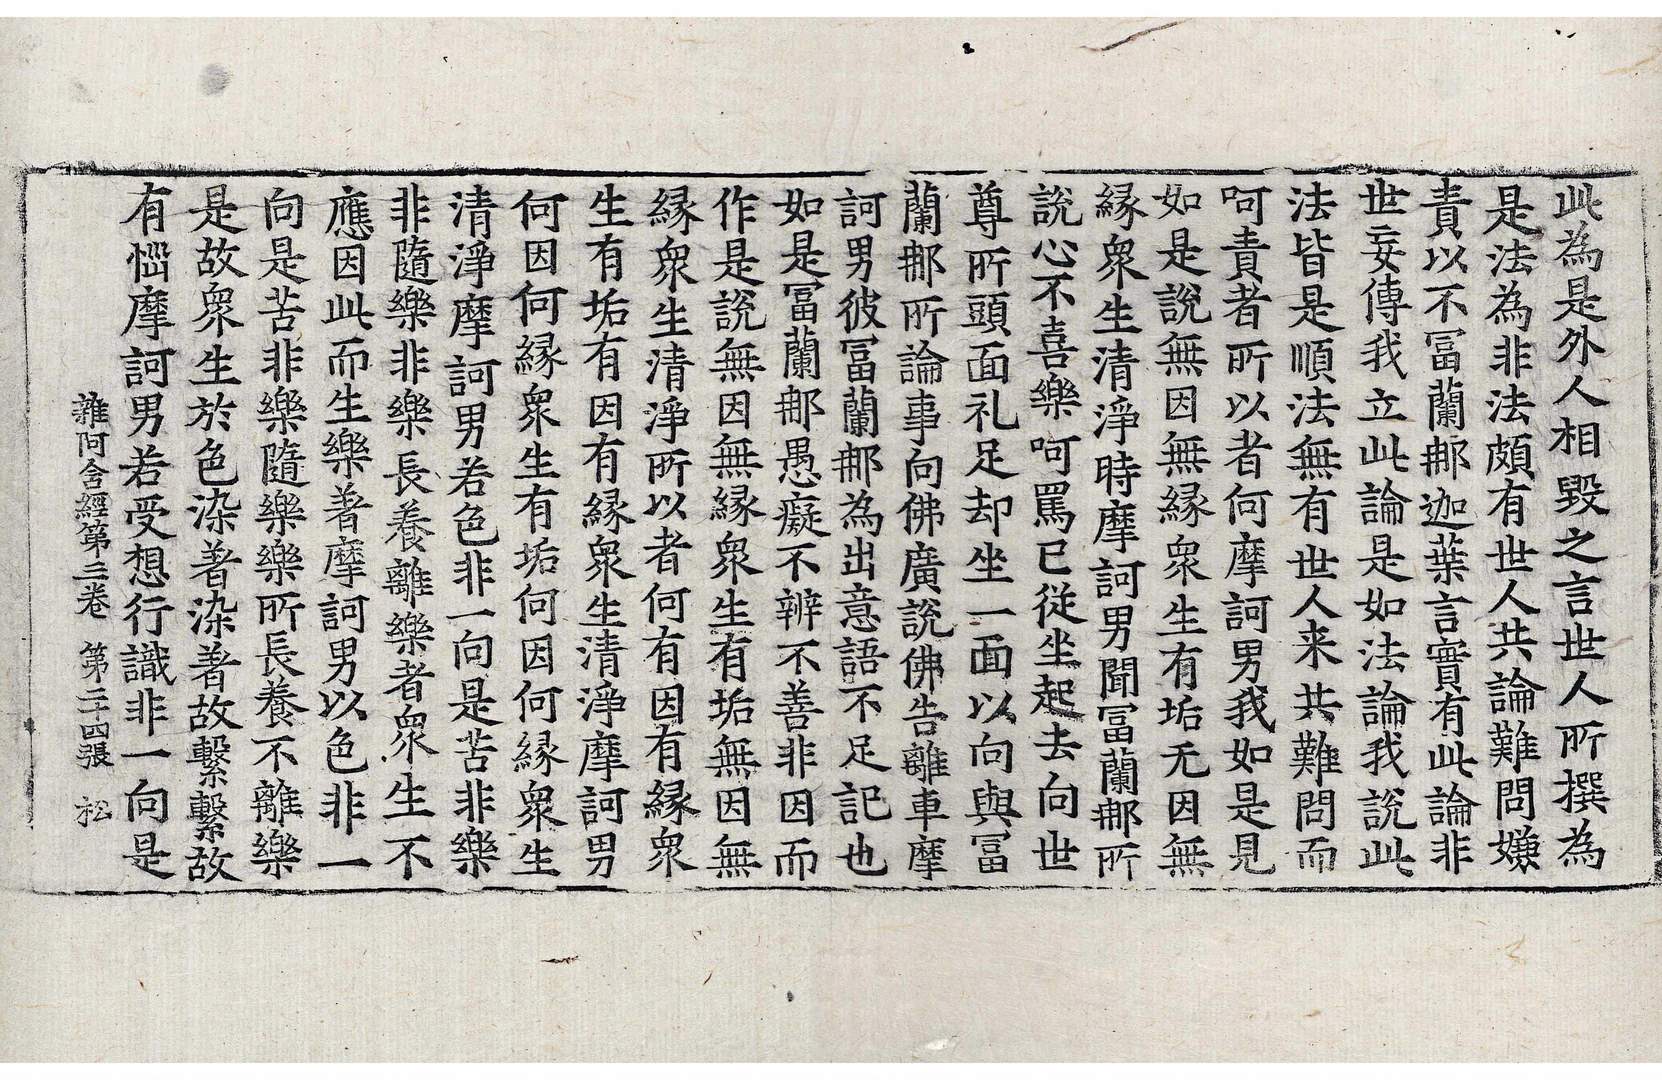 此為是外人相毀之言世人所撰為
是法為非法頗有世人共論難問嫌
責以不冨蘭那迦葉言實有此論非
世妄傳我立此論是如法論我說此
法皆是順法無有世人来共難問而
呵責者所以者何摩訶男我如是見
如是說無因無縁衆生有垢无因無
縁衆生清淨時摩訶男聞冨蘭那所
說心不喜樂呵罵已従坐起去向世
尊所頭面礼足却坐一面以向與冨
蘭那所論事向佛廣說佛告離車摩
訶男彼冨蘭那為出意語不足記也
如是冨蘭那愚癡不辨不善非因而
作是說無因無縁衆生有垢無因無
縁衆生清淨所以者何有因有縁衆
生有垢有因有縁衆生清淨摩訶男
何因何縁衆生有垢何因何縁衆生
清淨摩訶男若色非一向是苦非樂
非隨樂非樂長養離樂者衆生不
應因此而生樂著摩訶男以色非一
向是苦非樂隨樂樂所長養不離樂
是故衆生於色染著染著故繫繫故
有惱摩訶男若受想行識非一向是
雜阿含經第三卷 第二十四張 松